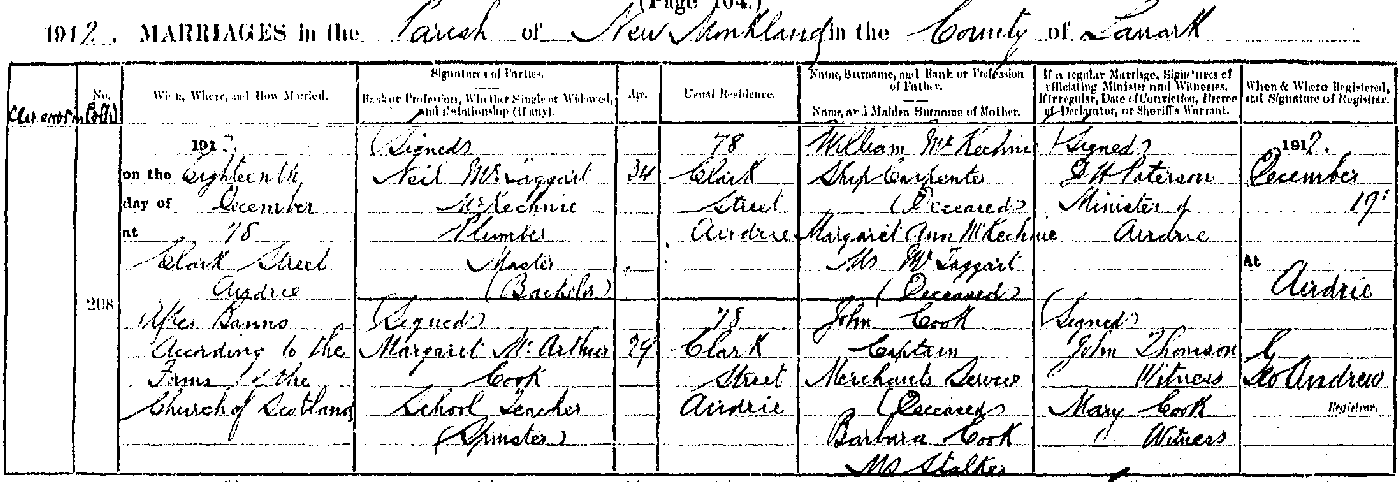 (Page 104.)
1912. MARRIAGES in the Parish of New Monkland in the County of Lanark
No.
When, Where, and How Married.
Signatures of Parties.
Rank or Profession, Whether Single or Widowed, and Relationship (if any).
Age.
Usual Residence.
Name, Surname, and Rank or Profession of Father.
Name, and Maiden Surname of Mother.
If a regular Marriage, Signatures of officiating Minister and Witnesses. If irregular, Date of Conviction, Decree of Declarator, or Sheriff's Warrant.
When & Where Registered, and Signature of Registrar.
208
1912.
on the Eighteenth
day of December
at 78
Clark Street
Airdrie
After Banns
According to the
Forms of the
Church of Scotland
(Signed)
Neil McTaggart
McKechnie
Plumber
Master
(Bachelor)
34
78
Clark
Street
Airdrie
William McKechnie
Ship Carpenter
(Deceased)
Margaret Ann McKechnie
Ms McTaggart
(Deceased)
(Signed)
Margaret McArthur
Cook
School Teacher
(Spinster)
29
78
Clark
Street
Airdrie
John Cook
Captain
Merchants Service
(Deceased)
Barbara Cook
Ms Stalker
(Signed)
Paterson
Minister of
Airdrie
(Signed)
John Thomson
Witness
Mary Cook
Witness
1912.
December
19
At
Airdrie
Geo Andrew
Registrar.